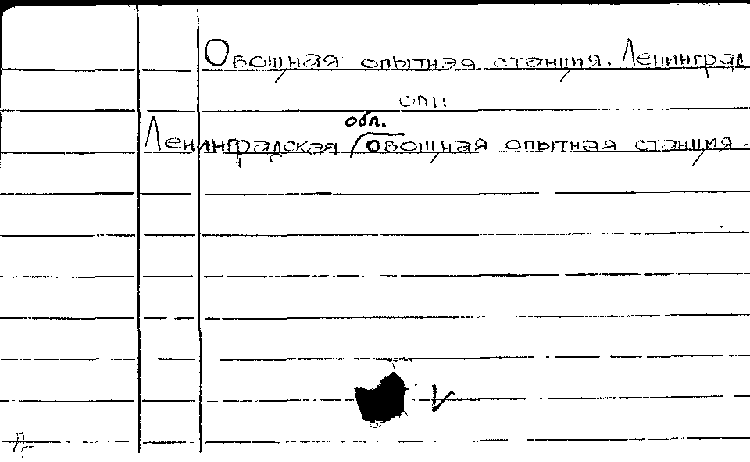 Овощная опытная станция. Ленинград
или
обл.
Ленинградская овощная опытная станция.